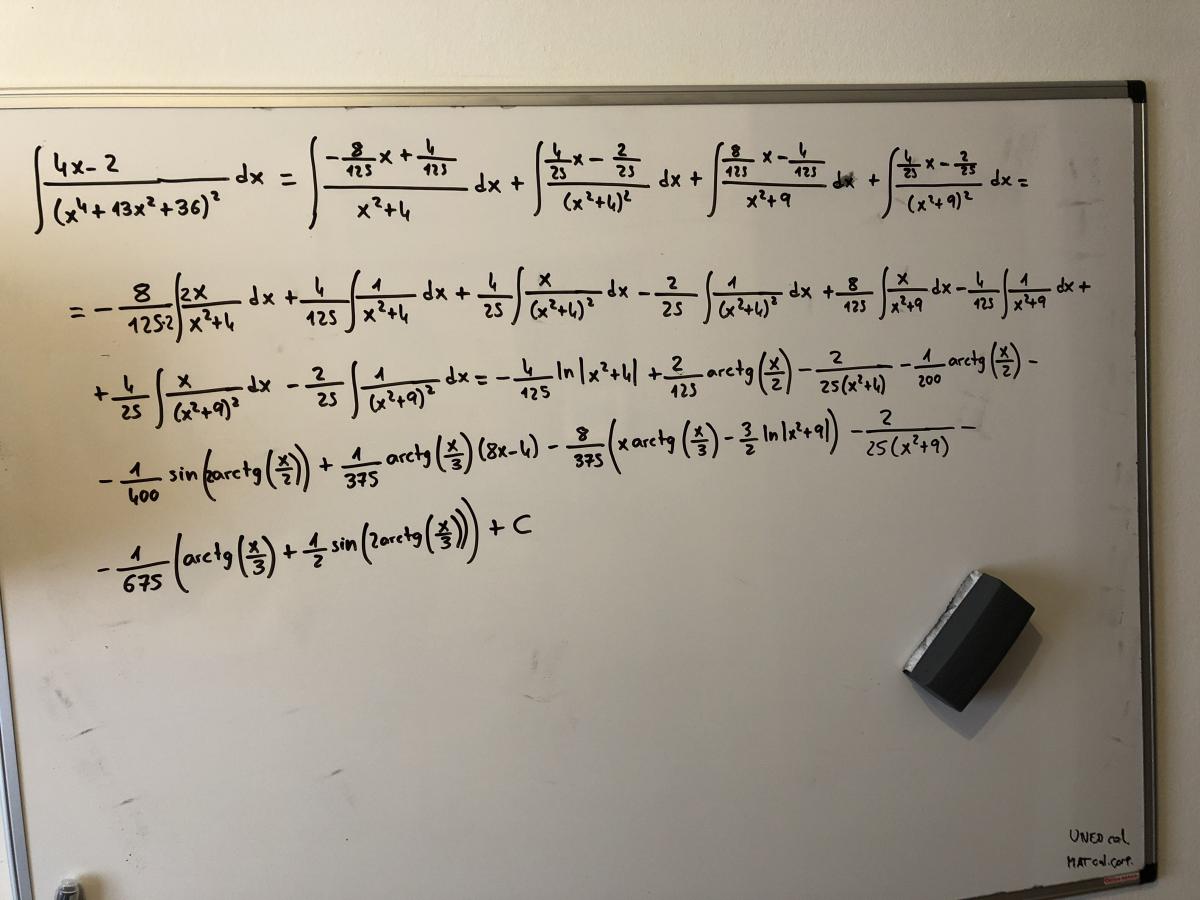 ∫ (4x-2)/(x⁴+13x²+36)² dx = ∫ (-8/125 x + 4/125)/(x²+4) dx + ∫ (4/25 x - 2/25)/(x²+4)² dx + ∫ (8/125 x - 4/125)/(x²+9) dx + ∫ (4/25 x - 2/25)/(x²+9)² dx =
= - 8/(125·2) ∫ 2x/(x²+4) dx + 4/125 ∫ 1/(x²+4) dx + 4/25 ∫ x/(x²+4)² dx - 2/25 ∫ 1/(x²+4)² dx + 8/125 ∫ x/(x²+9) dx - 4/125 ∫ 1/(x²+9) dx +
+ 4/25 ∫ x/(x²+9)² dx - 2/25 ∫ 1/(x²+9)² dx = - 4/125 ln|x²+4| + 2/125 arctg(x/2) - 2/(25(x²+4)) - 1/200 arctg(x/2) -
- 1/400 sin(2arctg(x/2)) + 1/375 arctg(x/3)(8x-4) - 8/375 (x arctg(x/3) - 3/2 ln|x²+9|) - 2/(25(x²+9)) -
- 1/675 (arctg(x/3) + 1/2 sin(2arctg(x/3))) + C
UNED cal.
MAT cal. corp.